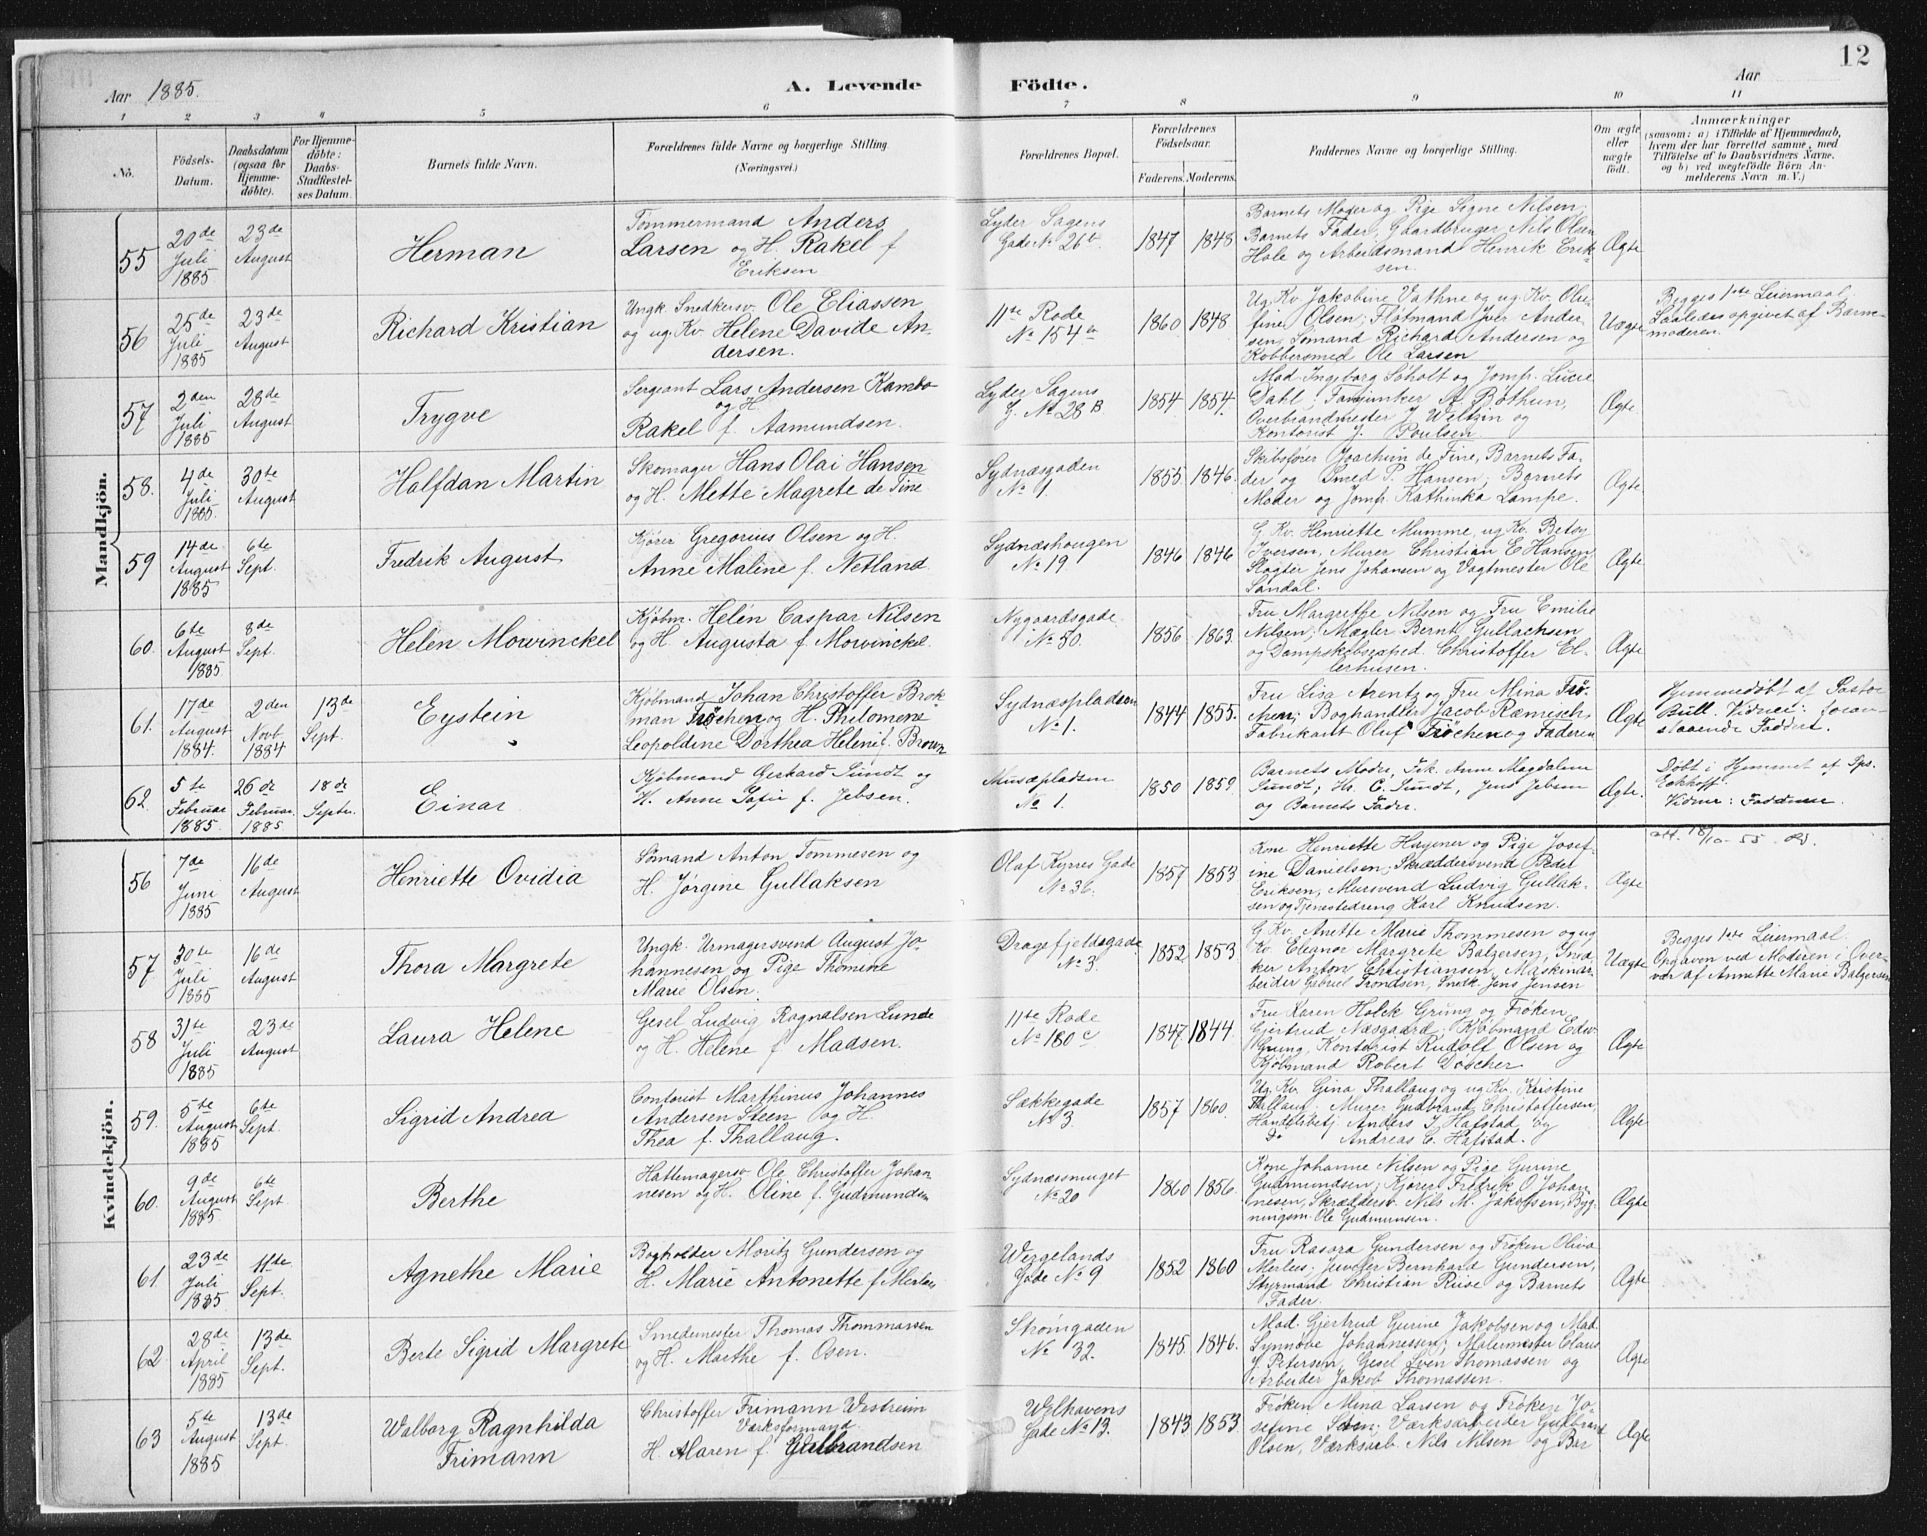 12
Aar 1885. A. Levende Födte. Aar
1 2 3 4 5 6 7 8 9 10 11
No.
Födsels-Datum.
Daabsdatum (ogsaa for Hjemmedöbte).
For Hjemmedöbte: Daabs-Stadfæstelses Datum
Barnets fulde Navn.
Forældrenes fulde Navne og borgerlige Stilling (Næringsvei.)
Forældrenes Bopæl.
Forældrenes Födselsaar.
Faderens. Moderens.
Faddernes Navne og borgerlige Stilling.
Om ægte eller uægte födt.
Anmærkninger
(saasom: a) i Tilfælde af Hjemmedaab, hvem der har forrettet samme, med Tilföielse af to Daabsvidners Navne, og b) ved uægtefödte Börn Anmelderens Navn m. V.)
Mandkjön.
55
20de Juli 1885
23de August
Herman
Tømmermand Anders
Larsen og H. Rakel f
Eriksen
Lyder Sagens
Gade No 26b
1847 1848
Barnets Moder og Pige Signe Nilsen;
Barnets Fader, Gaardbruger Nils Olsen
Hole og Arbeidsmand Henrik Erik-
sen.
Ægte
56
25de Juli 1885
23de August
Richard Kristian
Ungk. Snedkersv. Ole Eliassen
og ug. Kv. Helene Davide An-
dersen.
11te Rode
No 154a
1860 1848
Ug. Kv. Jakobine Vathne og ug. Kv. Ole-
fine Olsen; Flotmand Iver Ander-
sen, Sømand Richard Andersen og
Kobbersmed Ole Larsen
Uægte
Begges 1ste Leiermaal
Saaledes opgivet af Barne-
moderen.
57
2den Juli 1885
28de August
Trygve
Sergeant Lars Andersen Kambo
og H.
Rakel f. Aamundsen.
Lyder Sagens
G. No 28 B
1854 1854.
Mad. Ingeborg Søholt og Jomf. Lucie
Dahl; A. Bøthun,
Overbrandmester J. Weltzin og
Kontorist J. Poulsen
Ægte
58.
4de Juli 1885.
30te August
Halfdan Martin
Skomager Hans Olai Hansen
og H. Mette Magrete de Fine
Sydnæsgaden
No 1.
1855 1846.
Skibsfører Joachim de Fine, Barnets Fa-
der og Smed P. Hansen; Barnets
Moder og Jomf. Kathinka Lampe.
Ægte
59
14de August 1885
6te Sept.
Fredrik August
Kjører Gregorius Olsen og H.
Anne Maline f. Netland
Sydnæshougen
No 19
1846 1846
G. Kv. Henriette Mumme, ug. Kv. Betsy
Iversen, Murer Christian E Hansen
Slagter Jens Johansen og Vagtmester Ole
Sandal.
Ægte
60.
6te August 1885
8de Sept.
Helen Mowinckel
Kjøbm. Helen Caspar Nilsen
og H. Augusta f. Mowinckel.
Nygaardsgade
No 50.
1856 1863
Fru Margrethe Nilsen og Fru Emilie
Nilsen; Mægler Bernt Gullachsen
og Dampskibsexped. Christoffer El-
lerhusen.
Ægte
61.
17de August 1884.
2den Novb. 1884
13de Sept.
Eystein
Kjøbmand Johan Christoffer Brok-
man Trøchen og H. Philomene
Leopoldine Dorthea Helene f. Brown
Sydnæspladsen
No 1.
1844 1855.
Fru Lisa Arentz og Fru Mina Trø-
chen; Boghandler Jacob Ræmisch,
Fabrikant Oluf Trøchen og Faderen
Ægte
Hjemmedøbt af Pastor
Bull. Vidner: Foran-
staaende Faddere.
62.
5te Februar 1885.
26de Februar 1885
18de Septr.
Einar
Kjøbmand Gerhard Sundt og
H. Anne Sofie f. Jebsen.
Musæpladsen
No 1.
1850 1859.
Barnets Moder, Frk. Anne Magdalene
Sundt; Hr. C. Sundt, Jens Jebsen
og Barnets Fader.
Ægte.
Døbt i Hjemmet af Sps.
Eckhoff.
Vidner: Fadderne.
Kvindekjön.
56
7de Juni 1885
16de August
Henriette Ovidia
Sømand Anton Tommesen og
H. Jørgine Gullaksen
Olaf Kyrres Gade
No 36.
1857 1853
Kone Henriette Hagener og Pige Josef-
ine Danielsen; Skræddersvend Peder
Eriksen, Mursvend Ludvig Gullak-
sen og Tjenestedreng Karl Knudsen.
Ægte
att. 18/10-55
57
30te Juli 1885
16de August
Thora Margrete
Ungk. Urmagersvend August Jo-
hannesen og Pige Thomine
Marie Olsen.
Dragefjeldsgade
No 3.
1852 1853
G. Kv. Anette Marie Thommesen og ug
Kv. Eleanor Margrete Balgersen, Sned-
ker Anton Christiansen, Maskinar-
beider Gabriel Trondsen, Snedk. Jens Jensen
Uægte
Begges 1ste Leiermaal.
Opgaven ved Moderen i Over-
vær af Annette Marie Balgersen
58
31te Juli 1885
23de August
Laura Helene
Gesel Ludvig Ragnalsen Lunde
og H. Helene f Madsen.
11te Rode
No 180 c
1847 1844.
Fru Karen Holck Grung og Frøken
Gjertrud Næsgaard; Kjøbmand Edv.
Grung, Kontorist Rudolf Olsen og
Kjøbmand Robert Döscher
Ægte
59.
5te August 1885
6te Sept.
Sigrid Andrea
Contorist Marthinus Johannes
Andersen Steen og H.
Thea f. Thallaug.
Sækkegade
No 3
1857 1860.
Ug. Kv. Gina Thallaug og ug. Kv. Kristine
Thallaug; Murer Gudbrand Christoffersen,
Handelsbetj. Anders J Hafstad og
Do Andreas C. Hafstad.
Ægte
60.
9de August 1885
6te Sept
Berthe
Hattemagersv. Ole Christoffer Johan-
nesen og H. Oline f. Gudmundsen
Sydnæssmuget
No 20
1860 1856.
Kone Johanne Nilsen og Pige Gurine
Gudmundsen; Kjører Fredrik O. Johan-
nesen, Skræddersv. Nils M. Jakobsen, Byg-
ningsm. Ole Gudmunsen.
Ægte
61
23de Juli 1885
11de Sept.
Agnethe Marie
Bogholder Moritz Gundersen og
H. Marie Antonette f. Merlees
Wergelands
Gade No 9
1852 1860
Fru Rasora Gundersen og Frøken Oliva
Merlees; Juveler Bernhard Gundersen,
Styrmand Christian Riise og Barnets
Fader.
Ægte
62
28de April 1885
13de Sept.
Berte Sigrid Margrete
Smedemester Thomas Thommassen
og H. Marthe f. Osen.
Strømgaden
No 32.
1845 1846.
Mad. Gjertrud Gurine Jakobsen og Mad.
Synnøve Johannessen; Malermester Claus
J. Petersen, Gesel Sven Thomassen og
Arbeider Jakob Thomassen.
Ægte
63
5te August 1885
13de Sept.
Walborg Ragnhilda
Frimann
Christoffer Frimann Vestreim
Værksformand
H. Maren f. Gulbrandsen
Welhavens
Gade No 13.
1843 1853
Frøken Mina Larsen og Frøken Jo-
sefine Steen; Værksarbeider Gulbrand
Olsen, Værksarb. Nils Nilsen og Bar
Ægte